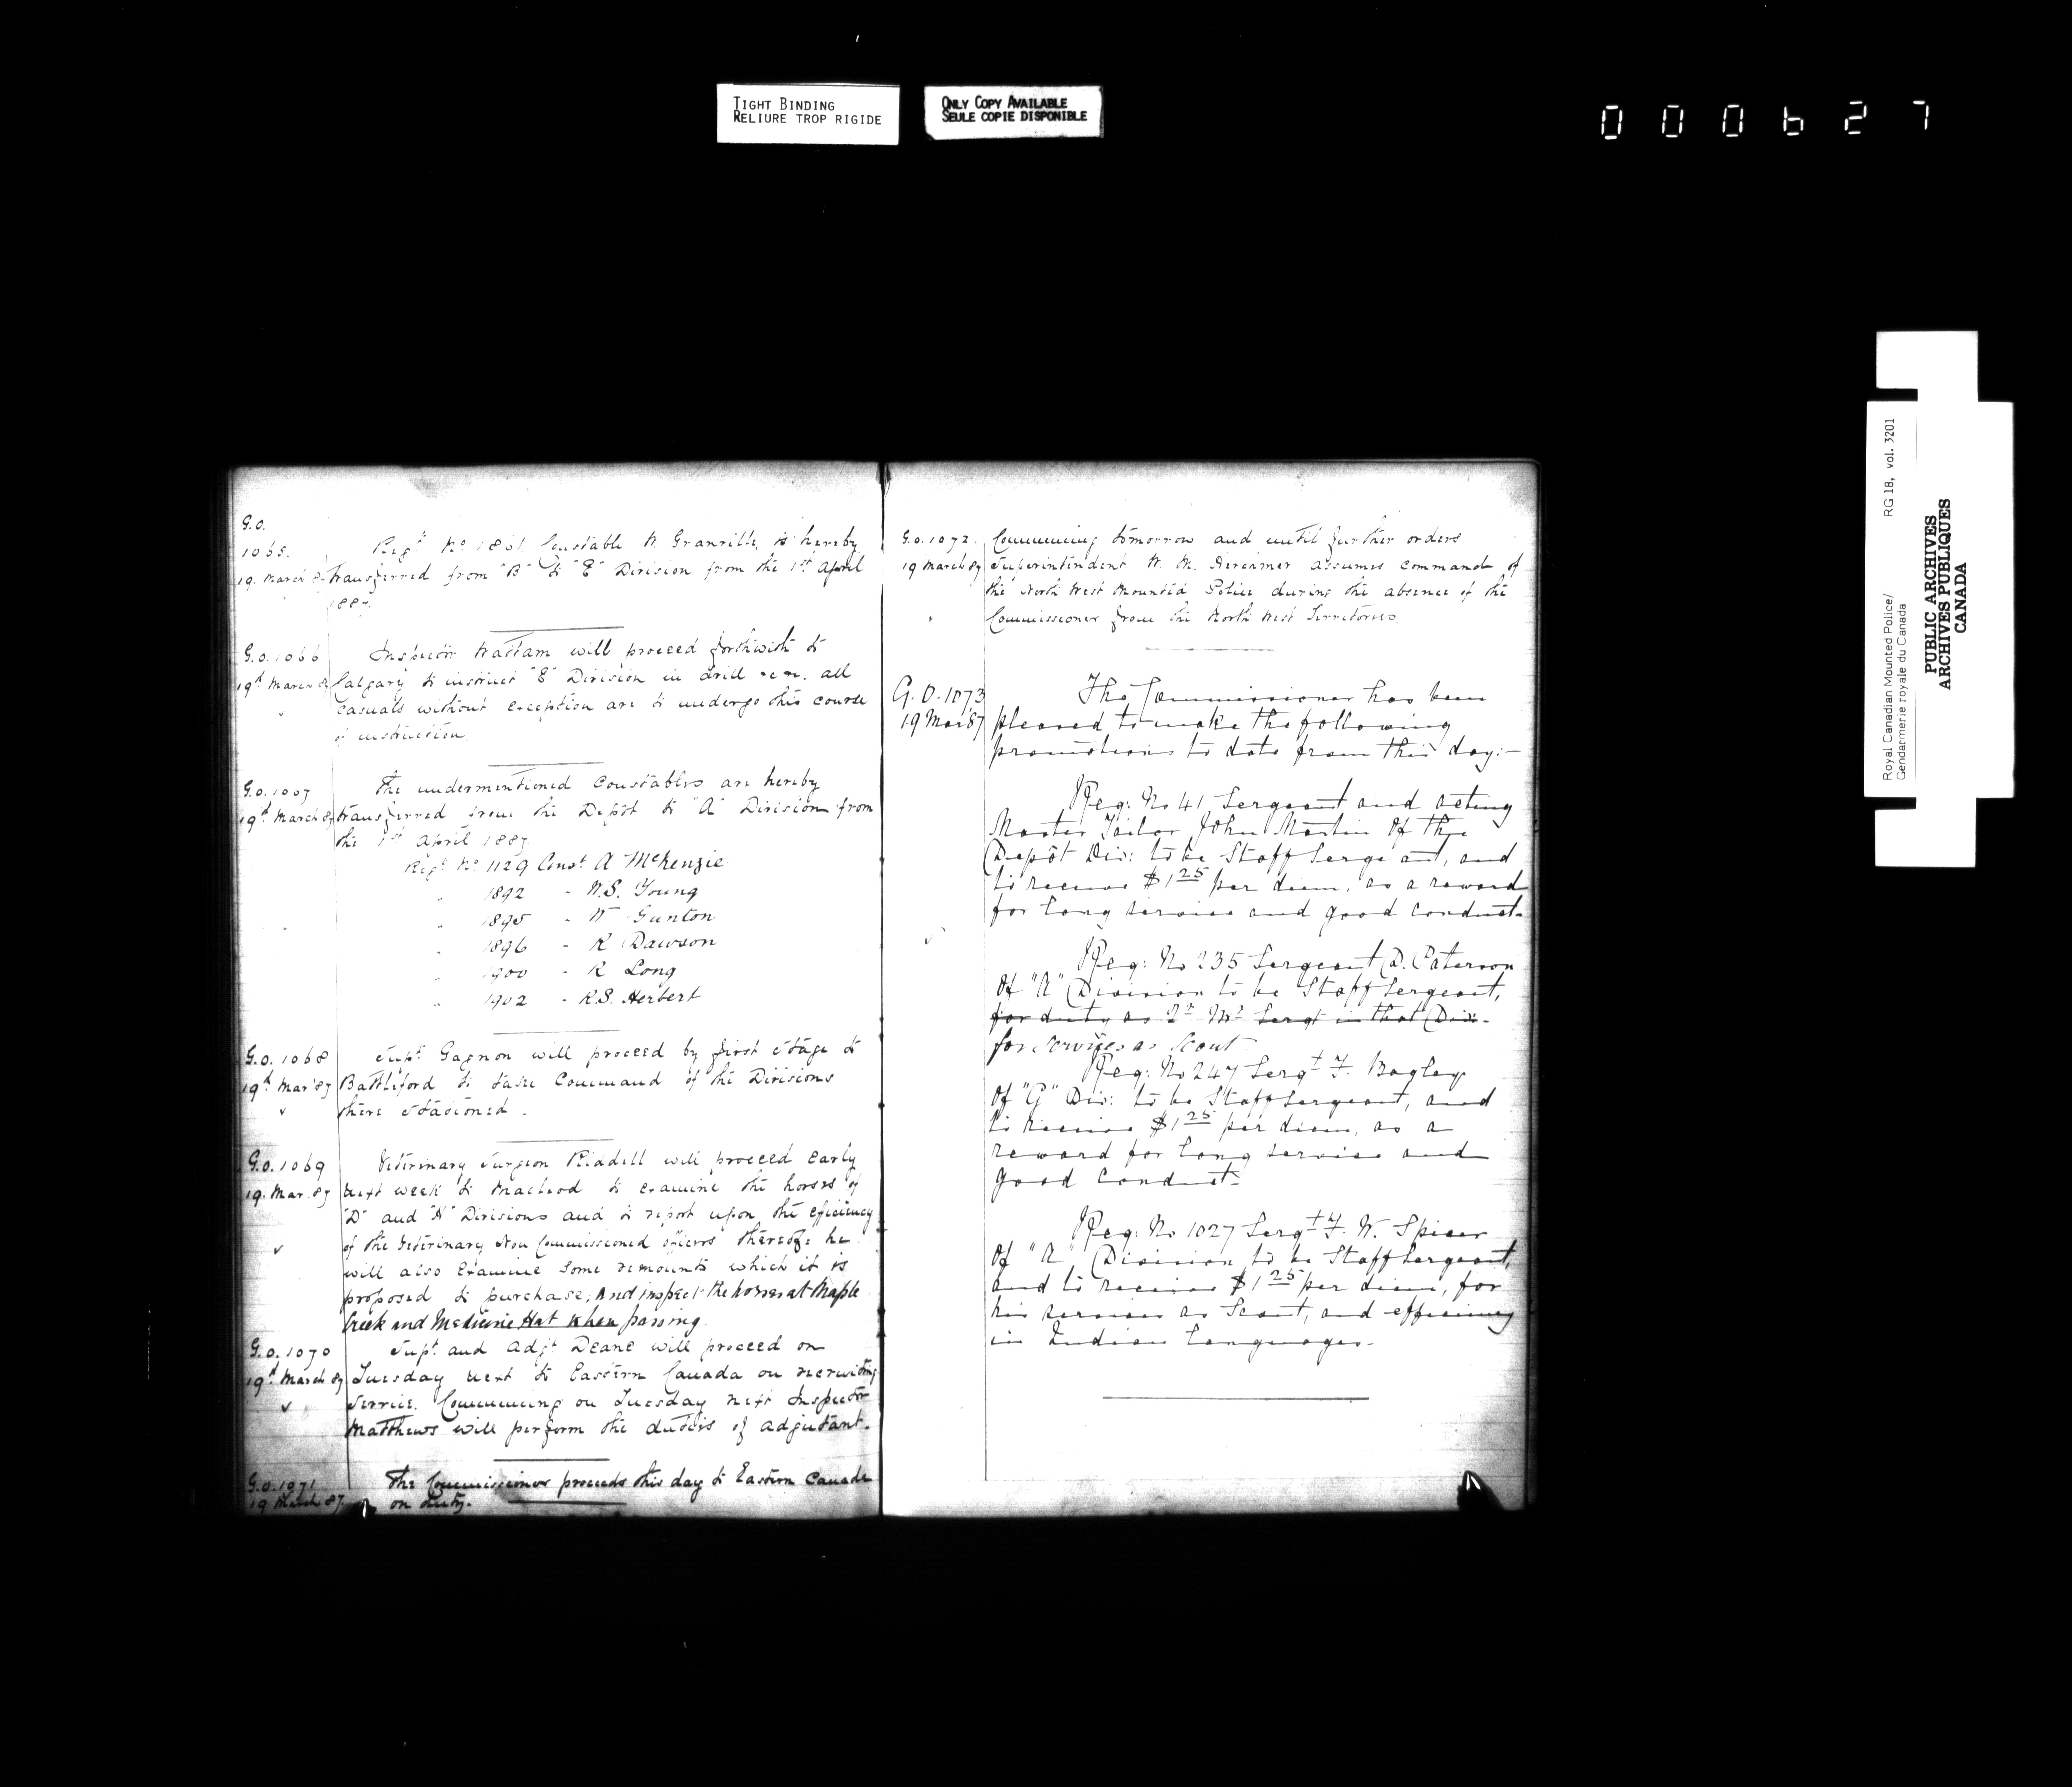 TIGHT BINDING
RELIURE TROP RIGIDE
ONLY COPY AVAILABLE
SEULE COPIE DISPONIBLE
000627
G.O.
1065.
19. March 87
Regt No 1861 Constable W. Granville, is hereby
transferred from "B" to "E" Division from the 1st April
1887.
G.O. 1066
19th March 87
Inspector Wattam will proceed forthwith to
Calgary to instruct "E" Division in drill &c &c. all
casuals without exception are to undergo this course
of instruction
G.O. 1067
19th March 87
The undermentioned Constables are hereby
transferred from the Depôt to "A" Division from
the 1st April 1887
Regt No 1129 Const A McKenzie
" 1892 - W.S. Young
" 1895 - W Gunton
" 1896 - R Dawson
" 1900 - R Long
" 1902 - R.S. Herbert
G.O. 1068
19th Mar '87
Supt Gagnon will proceed by first stage to
Battleford to take Command of the Divisions
there stationed.
G.O. 1069
19. Mar. 87
Veterinary Surgeon Riddell will proceed early
next week to Macleod to examine the horses of
"D" and "H" Divisions and to report upon the eficiency
of the Veterinary Non Commissioned officers thereof: he
will also examine some remounts which it is
proposed to purchase, and inspect the horses at Maple
Creek and Medicine Hat when passing.
G.O. 1070
19th March 87
Supt. and Adjt Deane will proceed on
Tuesday next to Eastern Canada on recruiting
Service. Commencing on Tuesday next Inspector
Matthews will perform the duties of adjutant.
G.O. 1071
19 March 87.
The Commissioner proceeds this day to Eastern Canada
on duty.
G.O. 1072.
19 March 87
Commencing tomorrow and until further orders
Superintendent W. M. Herchmer assumes command of
the North West Mounted Police during the absence of the
Commissioner from the North West Territories.
G.O. 1073
19 Mar 87
The Commissioner has been
pleased to make the following
promotions to date from this day:-
Reg: No 41 Sergeant and acting
Master Tailor John Martin of the
Depôt Div: to be Staff Sergeant, and
to receive $1.25 per diem, as a reward
for long service and good conduct.
Reg: No 235 Sergeant D. Paterson
of "A" Division to be Staff Sergeant,
for duty as Qr Mr Sergt in that Div.
for services as Scout
Reg: No 247 Sergt F. Bagley
of "G" Div: to be Staff Sergeant, and
to receive $1.25 per diem, as a
reward for long service and
good conduct.
Reg: No 1027 Sergt F. W. Spicer
of "A" Division to be Staff Sergeant,
and to receive $1.25 per diem, for
his services as Scout, and efficiency
in Indian languages.
Royal Canadian Mounted Police/ RG 18, vol. 3201
Gendarmerie royale du Canada
PUBLIC ARCHIVES
ARCHIVES PUBLIQUES
CANADA